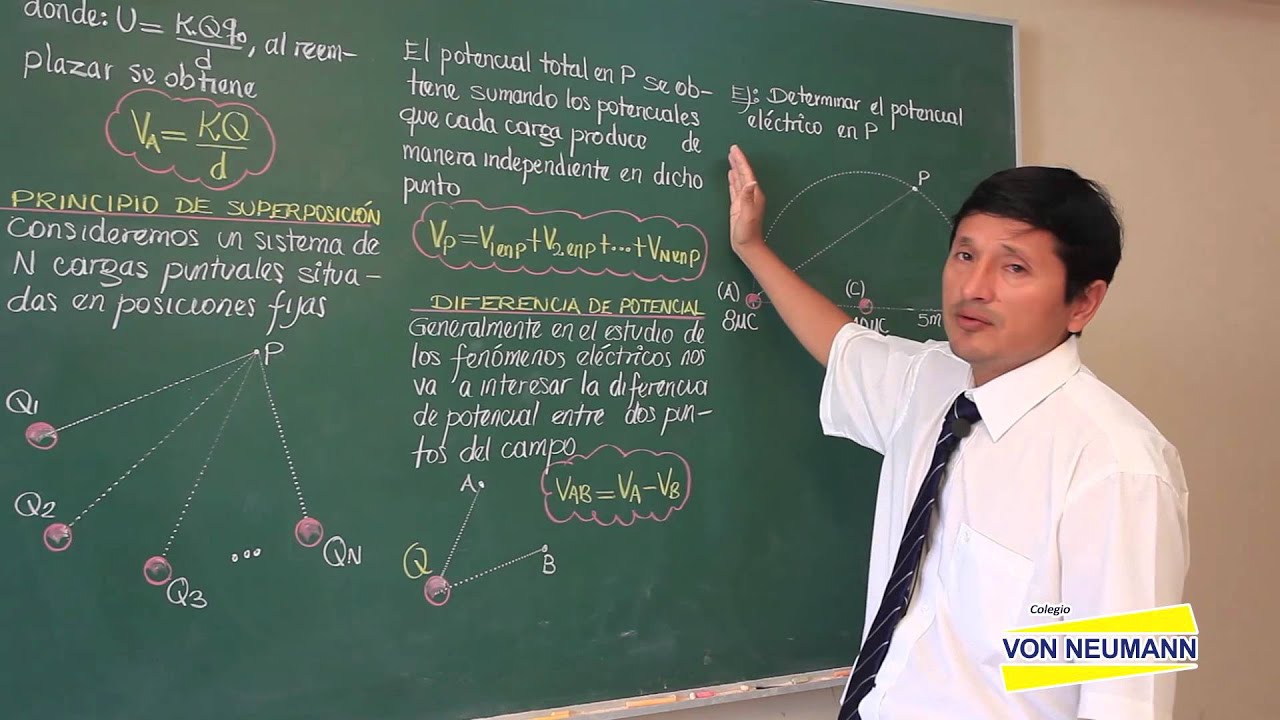 donde: U = K.Qq₀/d, al reem-
plazar se obtiene
V_A = KQ/d
PRINCIPIO DE SUPERPOSICIÓN
Consideremos un sistema de
N cargas puntuales situa-
das en posiciones fijas
P
Q1
Q2
Q3
...
QN
El potencial total en P se ob-
tiene sumando los potenciales
que cada carga produce de
manera independiente en dicho
punto
V_P = V_1enP + V_2enP + ... + V_NenP
DIFERENCIA DE POTENCIAL
Generalmente en el estudio de
los fenómenos eléctricos nos
va a interesar la diferencia
de potencial entre dos pun-
tos del campo
V_AB = V_A - V_B
A
Q
B
Ej: Determinar el potencial
eléctrico en P
P
(A)
(C)
8μC
5m
Colegio
VON NEUMANN